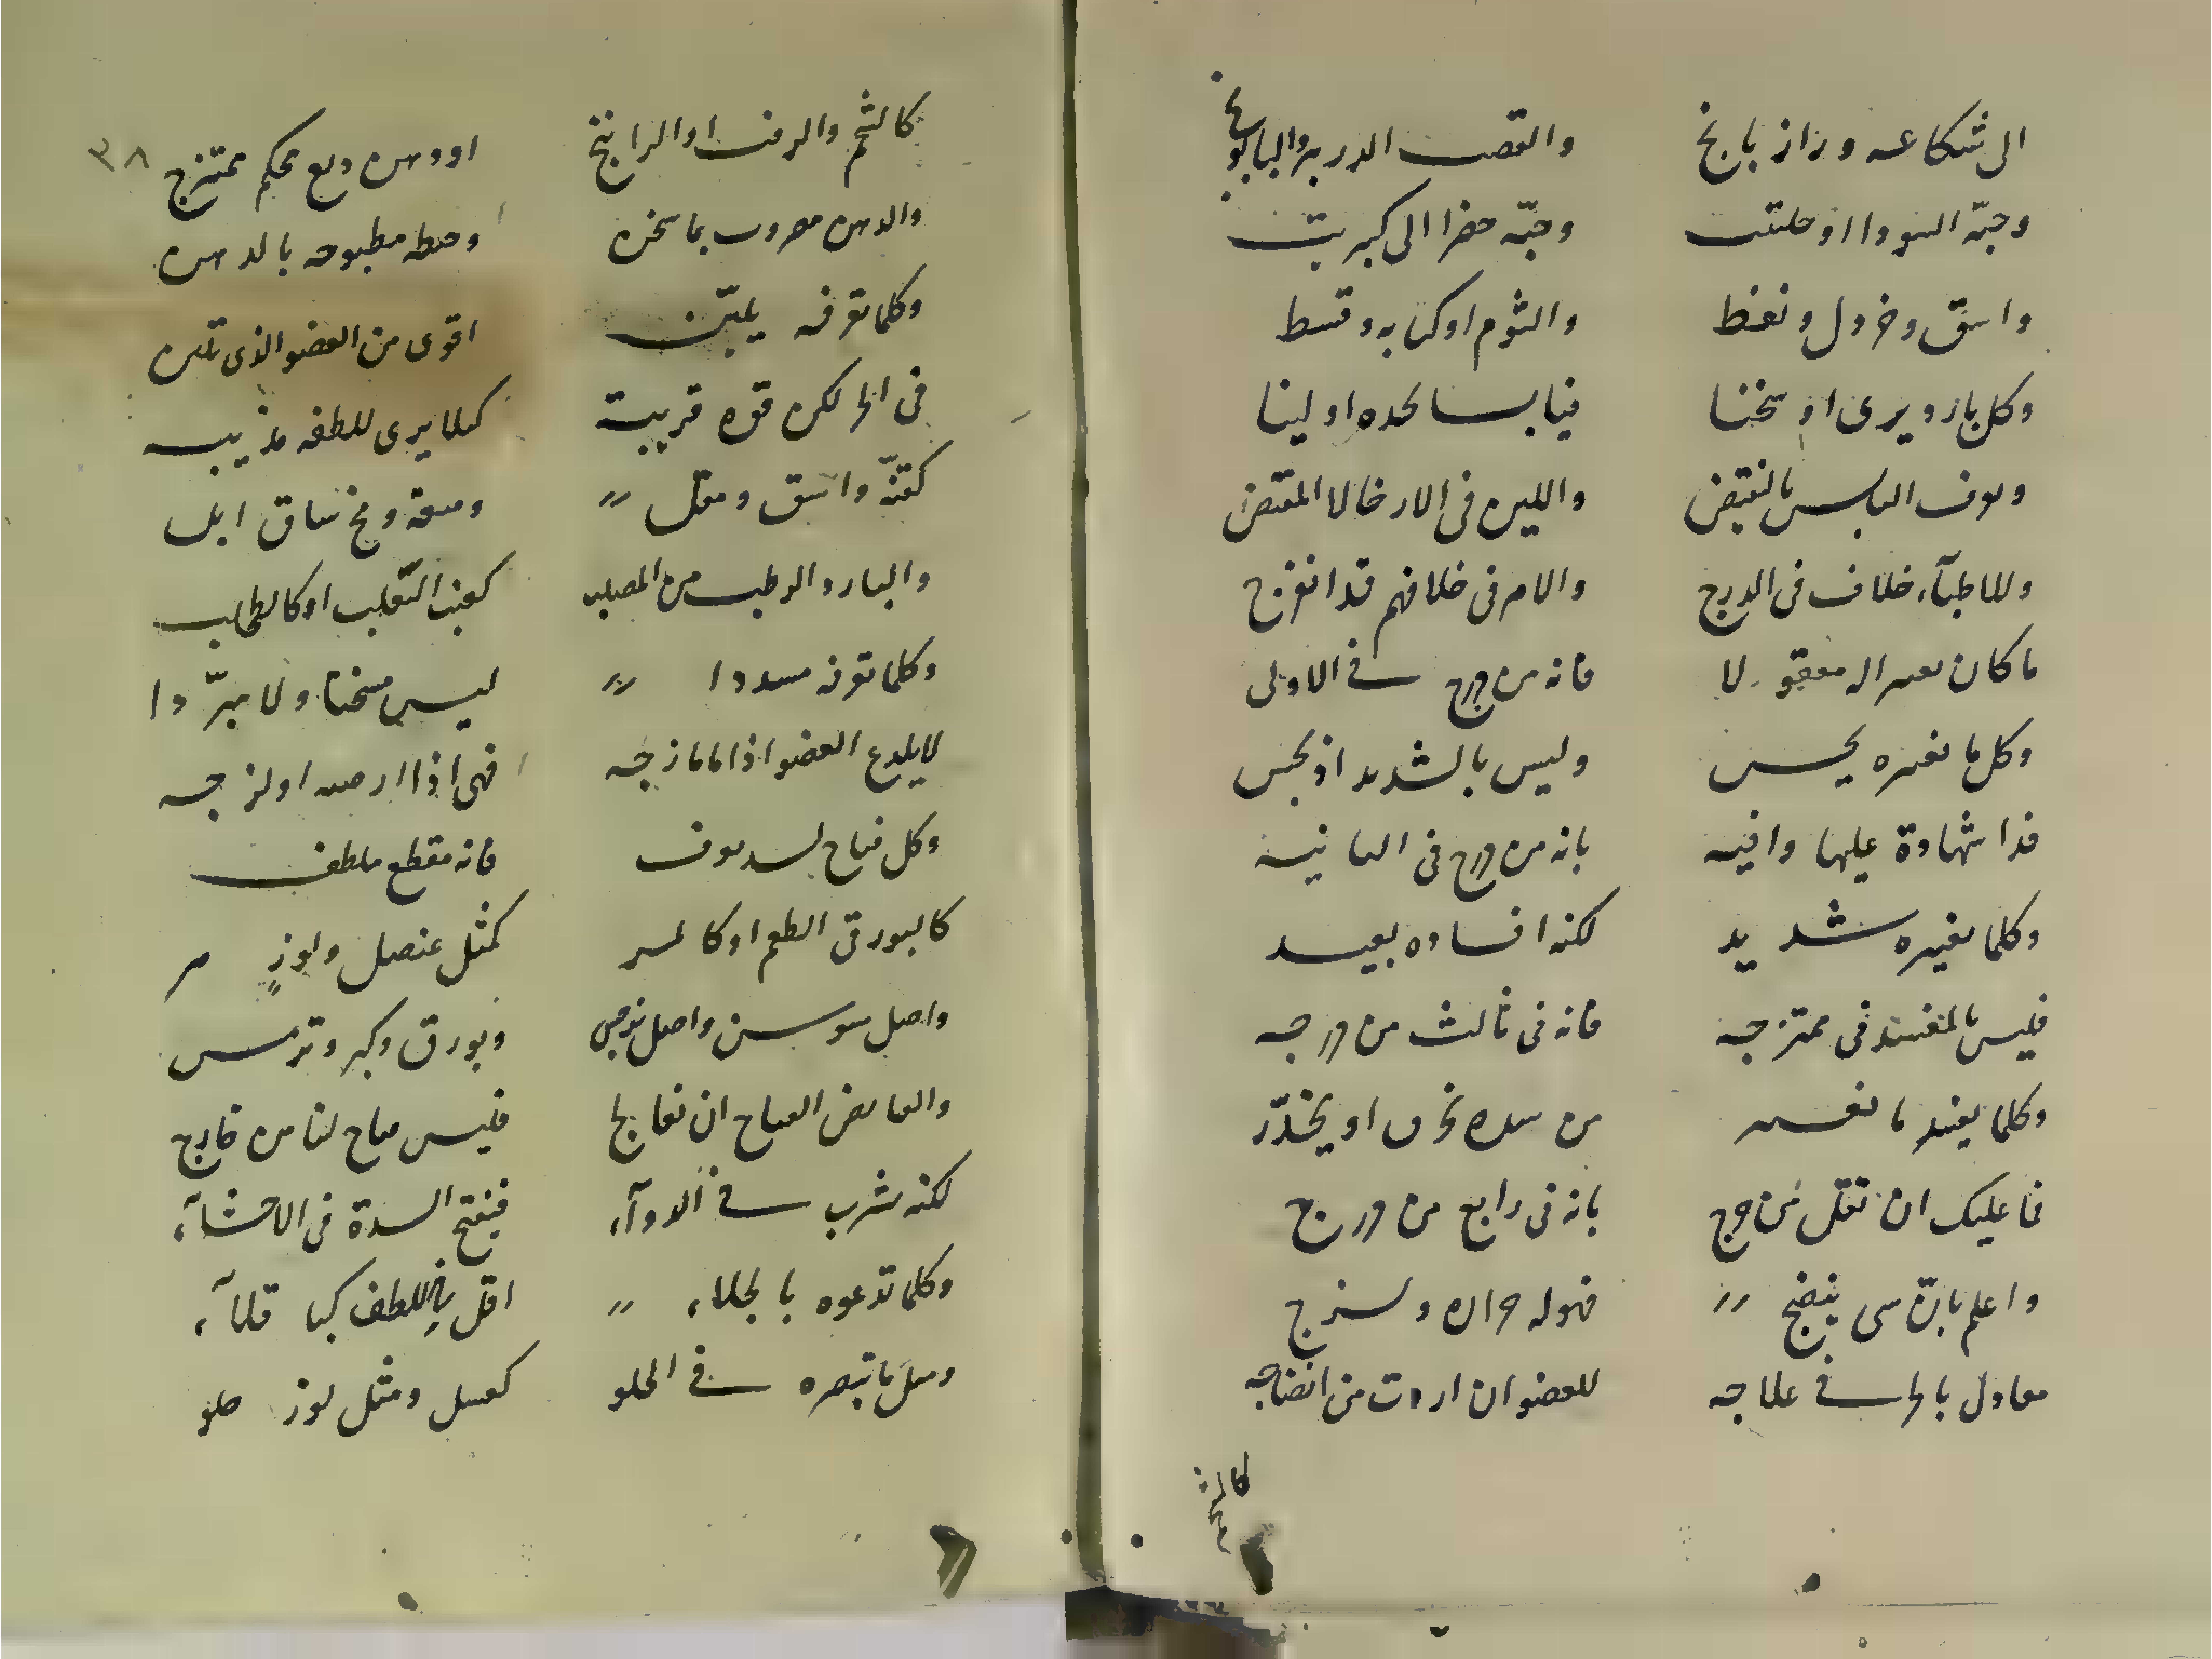 الى شكاعه ورازيانخ والقصب الدريره والبابونج
وحبّه السودا او حلتيت وحبّه خضرا الى كبريت
واشق وخردل ونفط والثوم او كبابه وقسط
وكل بارد يرى او سخنا فيابسا تحده او لينا
وتعرف اليابس بالتقبض واللين فى الارخا لا المقتض
وللاطبآء خلاف فى الدرج والامر فى خلافهم قد انفرج
ما كان تعييراله معقولا فانه من درج فى الاولى
وكل ما تغييره يحس وليس بالشديد اذ يحس
فذا شهادة عليها وافيه بانه من درج فى الثانيه
وكلما تغييره شديد لكنه افساده بعيد
فليس بالمفسد فى ممتزجه فانه فى ثالث من درجه
وكلما يفسد ما يغير من شدة تحرق او يخدّر
فما عليك ان تقل من حرج بانه فى رابع من درج
واعلم بان شى ينضج فهو له حراره ولزج
معادل بالحر فى علاجه للعضو ان اردت من انضاجه
كالشحم
٣٨
كالشحم والزفت او الراتينج او دهن وبع محكم ممتزج
والدهن مضروب بما سخن وحنطه مطبوخه بالدهن
وكلما تعرفه يليّن اقوى من العضو الذى تلين
فى الحر لكن قوه قريبة كيلا يرى للطفه مذيبه
كقنّه واشق ومقل وميعه ومخ ساق ابل
والبارد الرطب من المصلب كعنب الثعلب او كالطحلب
وكلما تعرفه مسددا ليس مسخنا ولا مبرّدا
لا يلدع العضو اذا ما مازجه فهى اذا ارضيه او لزجه
وكل فتاح لسد يعرف فانه مقطع ملطف
كالبورقى الطعم او كالمر كمثل عنصل ولوز مر
واصل سوسن واصل نرجس وبورق وكبر وترمس
والقابض الفتاح ان تعالجا فليس فتاح لنا من خارج
لكنه يشرب فى الدوآء فيفتح السدة فى الاحشآء
وكلما تدعوه بالجلاء اقل فى اللطف كبا قلآء
ومثل ما تبصره فى الحلو كعسل ومثل لوز حلو